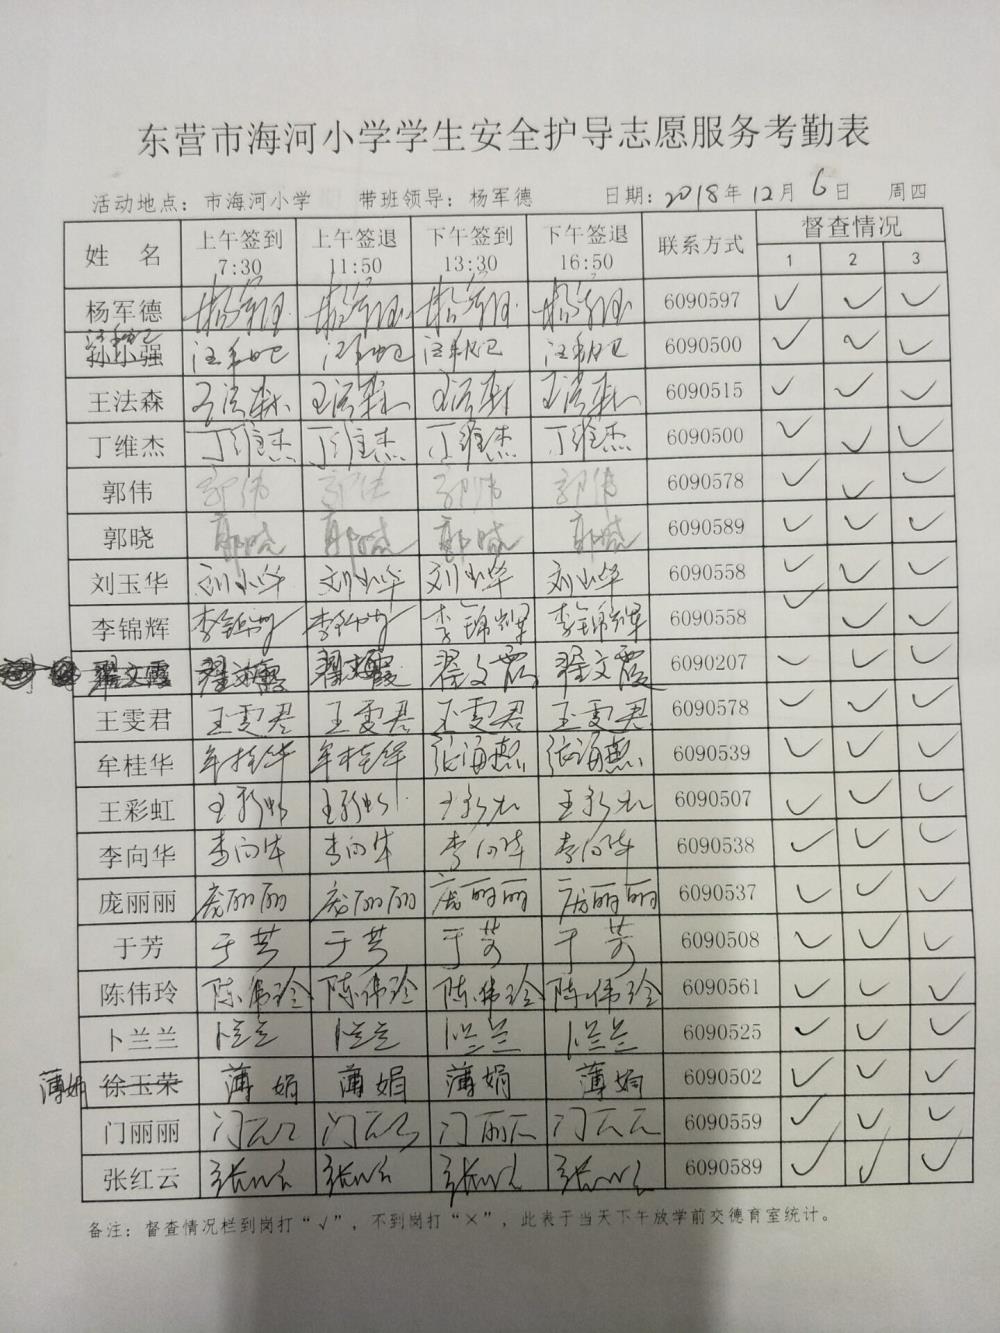 东营市海河小学学生安全护导志愿服务考勤表
活动地点：市海河小学 带班领导：杨军德 日期：2018年12月6日 周四
姓 名 上午签到 7:30 上午签退 11:50 下午签到 13:30 下午签退 16:50 联系方式 督查情况
1 2 3
杨军德 杨军德 杨军德 杨军德 杨军德 6090597 ✓ ✓ ✓
孙小强 6090500 ✓ ✓ ✓
王法森 王法森 王法森 王法森 王法森 6090515 ✓ ✓ ✓
丁维杰 丁维杰 丁维杰 丁维杰 丁维杰 6090500 ✓ ✓ ✓
郭伟 郭伟 郭伟 郭伟 郭伟 6090578 ✓ ✓ ✓
郭晓 郭晓 郭晓 郭晓 郭晓 6090589 ✓ ✓ ✓
刘玉华 刘玉华 刘玉华 刘玉华 刘玉华 6090558 ✓ ✓ ✓
李锦辉 李锦辉 李锦辉 李锦辉 李锦辉 6090558 ✓ ✓ ✓
翟文霞 翟文霞 翟文霞 翟文霞 翟文霞 6090207 ✓ ✓ ✓
王雯君 王雯君 王雯君 王雯君 王雯君 6090578 ✓ ✓ ✓
牟桂华 牟桂华 牟桂华 张海燕 张海燕 6090539 ✓ ✓ ✓
王彩虹 王彩虹 王彩虹 王彩虹 王彩虹 6090507 ✓ ✓ ✓
李向华 李向华 李向华 李向华 李向华 6090538 ✓ ✓ ✓
庞丽丽 庞丽丽 庞丽丽 庞丽丽 庞丽丽 6090537 ✓ ✓ ✓
于芳 于芳 于芳 于芳 于芳 6090508 ✓ ✓ ✓
陈伟玲 陈伟玲 陈伟玲 陈伟玲 陈伟玲 6090561 ✓ ✓ ✓
卜兰兰 卜兰兰 卜兰兰 卜兰兰 卜兰兰 6090525 ✓ ✓ ✓
薄娟 徐玉荣 薄娟 薄娟 薄娟 薄娟 6090502 ✓ ✓ ✓
门丽丽 门丽丽 门丽丽 门丽丽 门丽丽 6090559 ✓ ✓ ✓
张红云 张红云 张红云 张红云 张红云 6090589 ✓ ✓ ✓
备注：督查情况栏到岗打“√”，不到岗打“×”，此表于当天下午放学前交德育室统计。